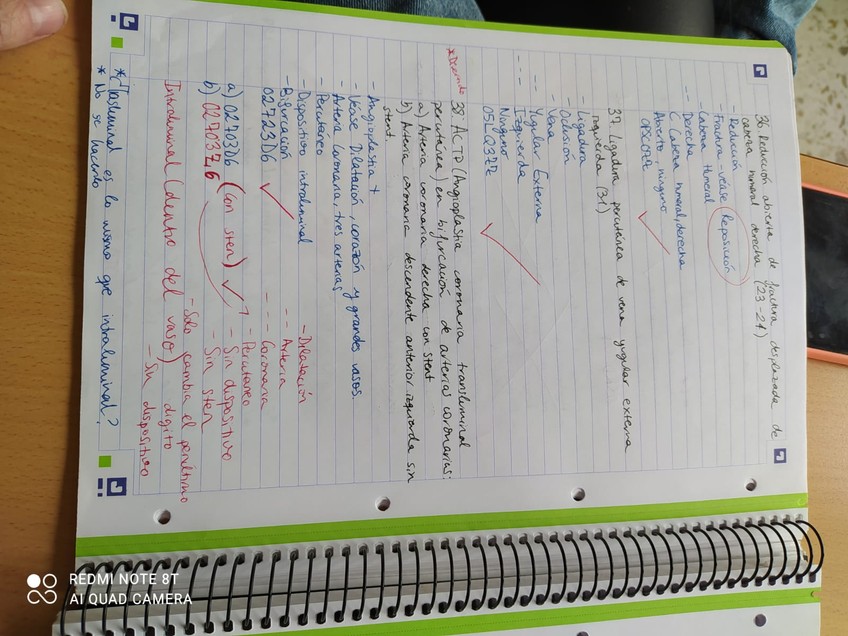 36 Reducción abierta de fractura desplazada de
cabeza humeral derecha (23-24)
- Reducción
- Fractura - véase Reposición
- Cabeza Humeral
-- Derecha
C Cabeza humeral, derecha
Abierto, ninguno
37 Ligadura percutánea de vena yugular externa
izquierda (31)
- Ligadura
- Oclusión
- Vena
-- Yugular Externa
--- Izquierda
Ninguno
05LQ3ZZ
38 ACTP (Angioplastia coronaria transluminal
percutánea) en bifurcación de arterias coronarias:
a) Arteria coronaria derecha con stent
b) Arteria coronaria descendente anterior izquierda sin
stent.
- Angioplastia +
- Véase Dilatación, corazón y grandes vasos.
Arteria Coronaria, tres arterias
- Percutáneo
- Dispositivo intraluminal
- Bifurcación
02723D6
- Dilatación
-- Arteria
--- Coronaria
a) 02703D6 (con sten)
- Percutáneo
- Sin dispositivo
b) 02703Z6
- Sin sten
- Solo cambia el penúltimo
dígito
Intraluminal (dentro del vaso)
- Sin dispositivo
* ¿Trasluminal es lo mismo que intraluminal?
* No se hacerlo
REDMI NOTE 8T
AI QUAD CAMERA